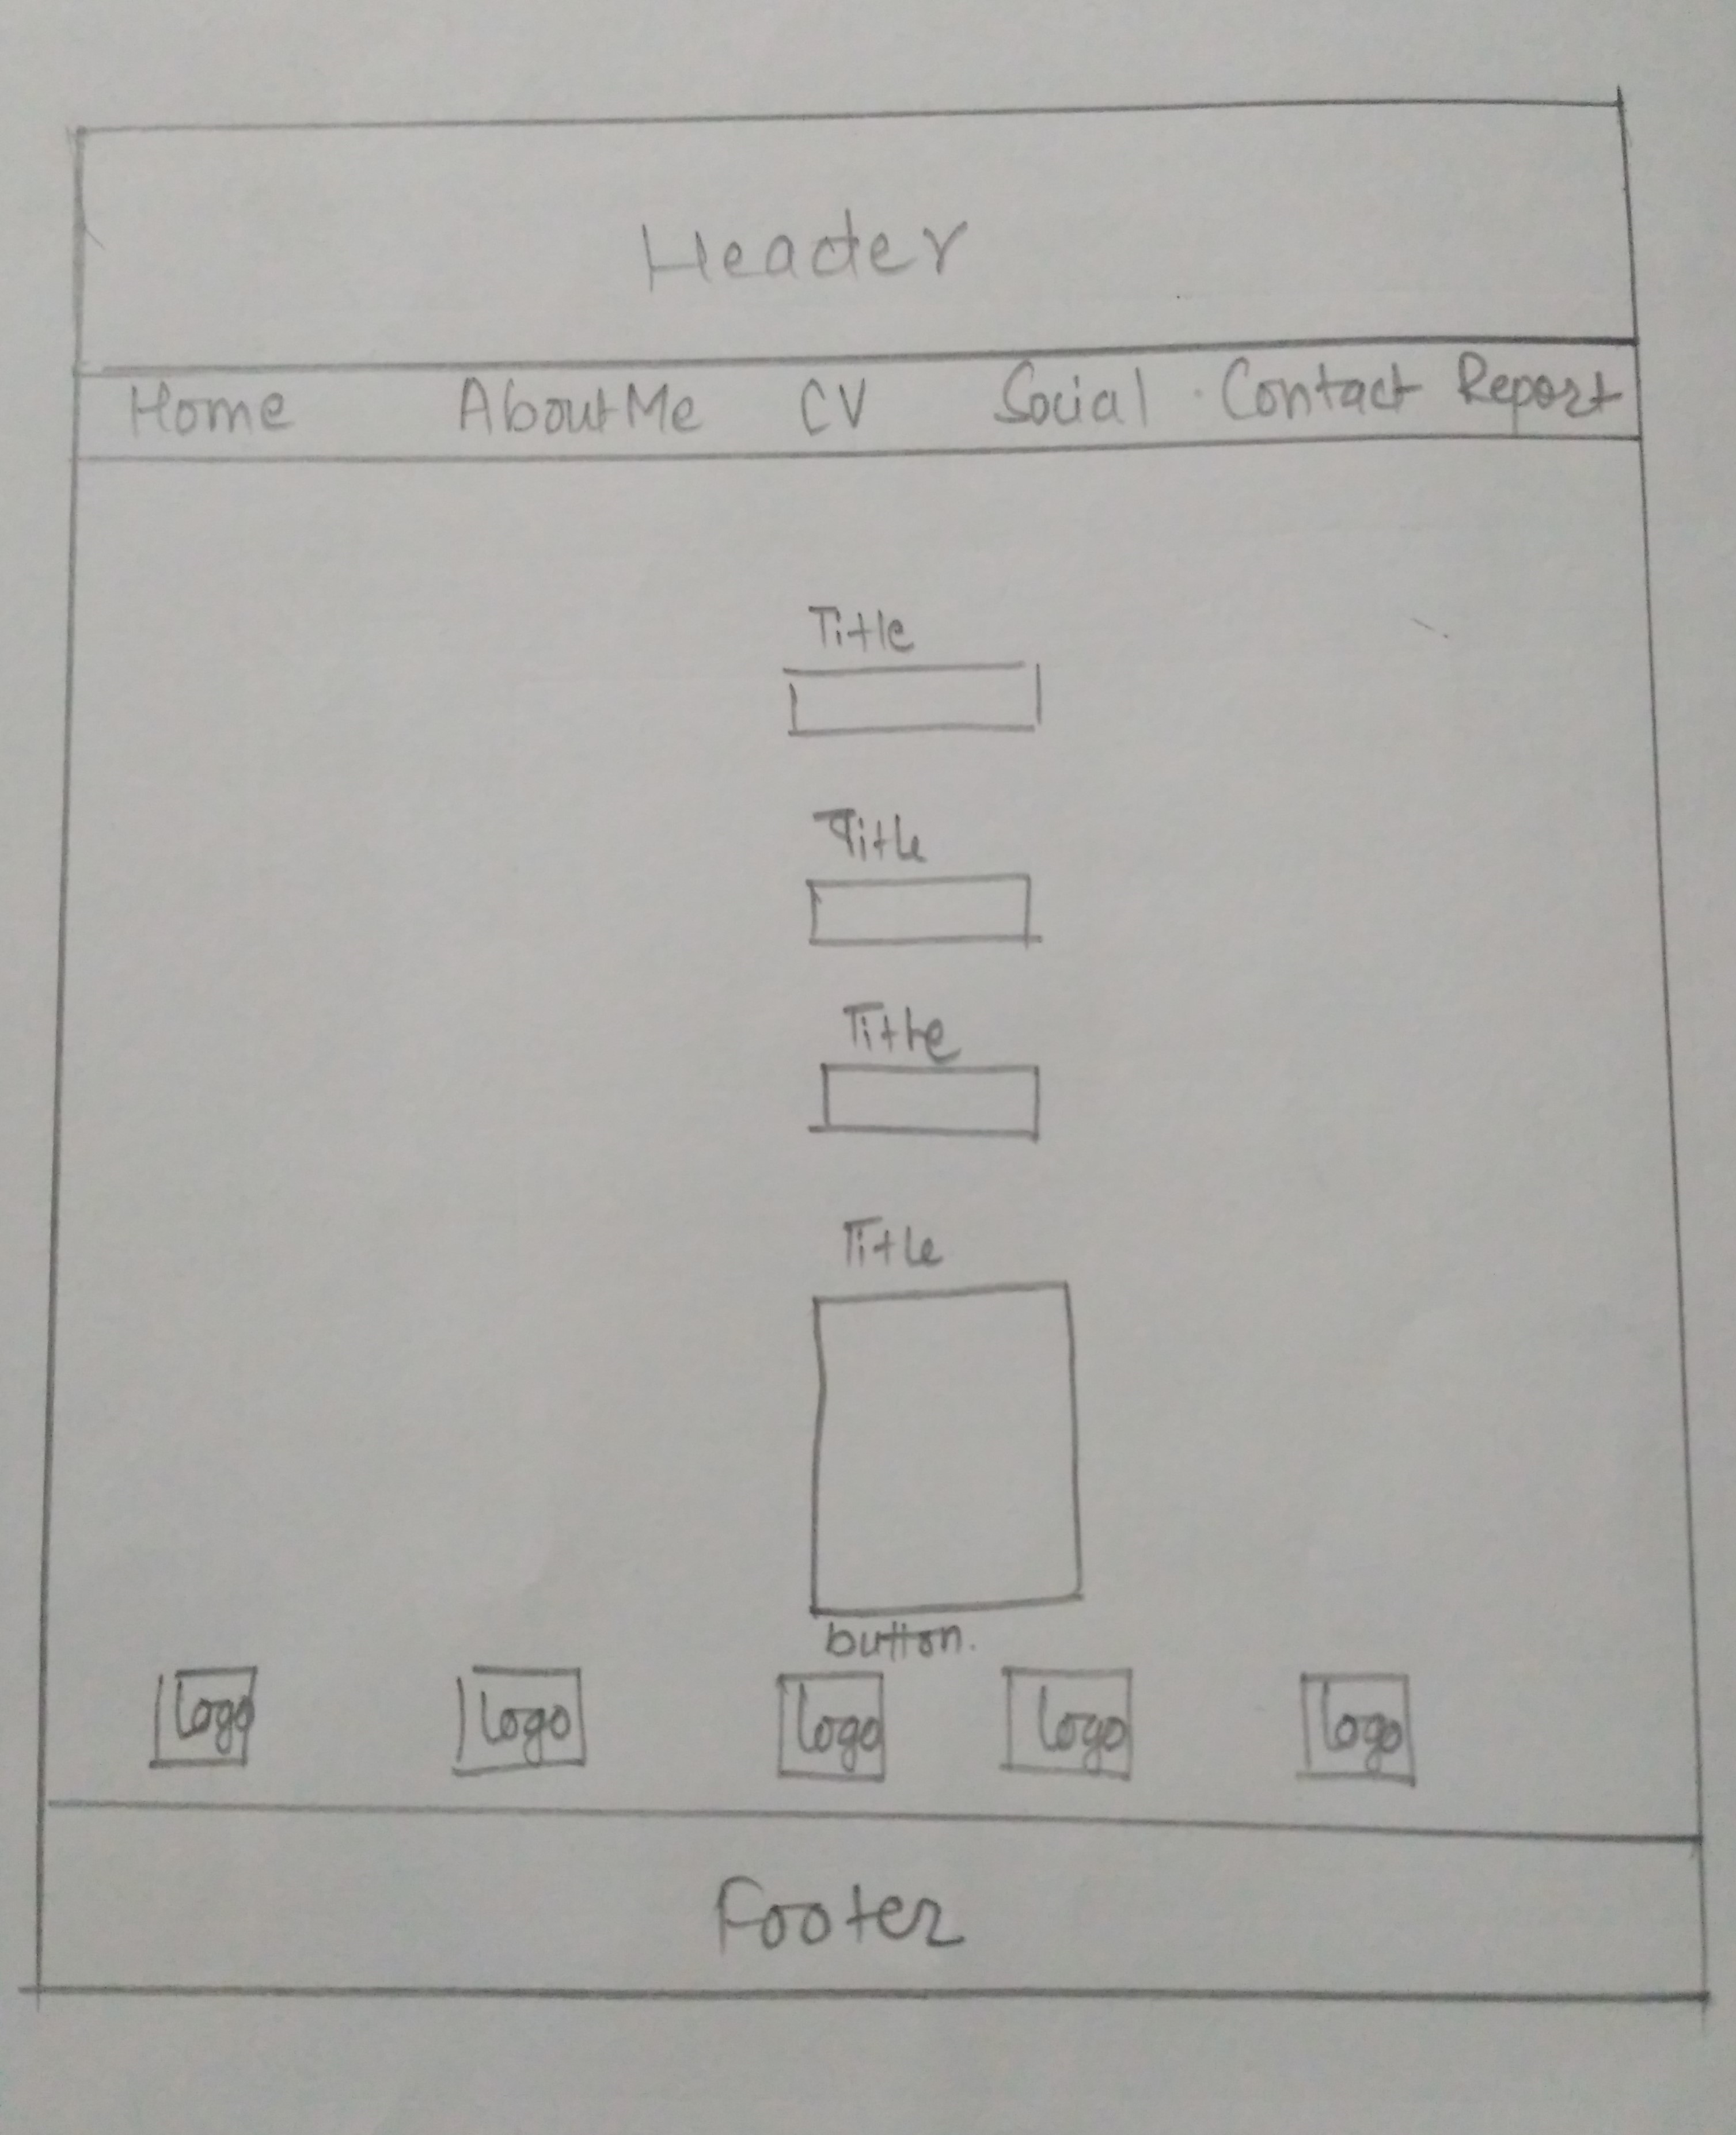 Header
Home About Me CV Social Contact Report
Title
Title
Title
Title
button.
Logo Logo Logo Logo Logo
Footer